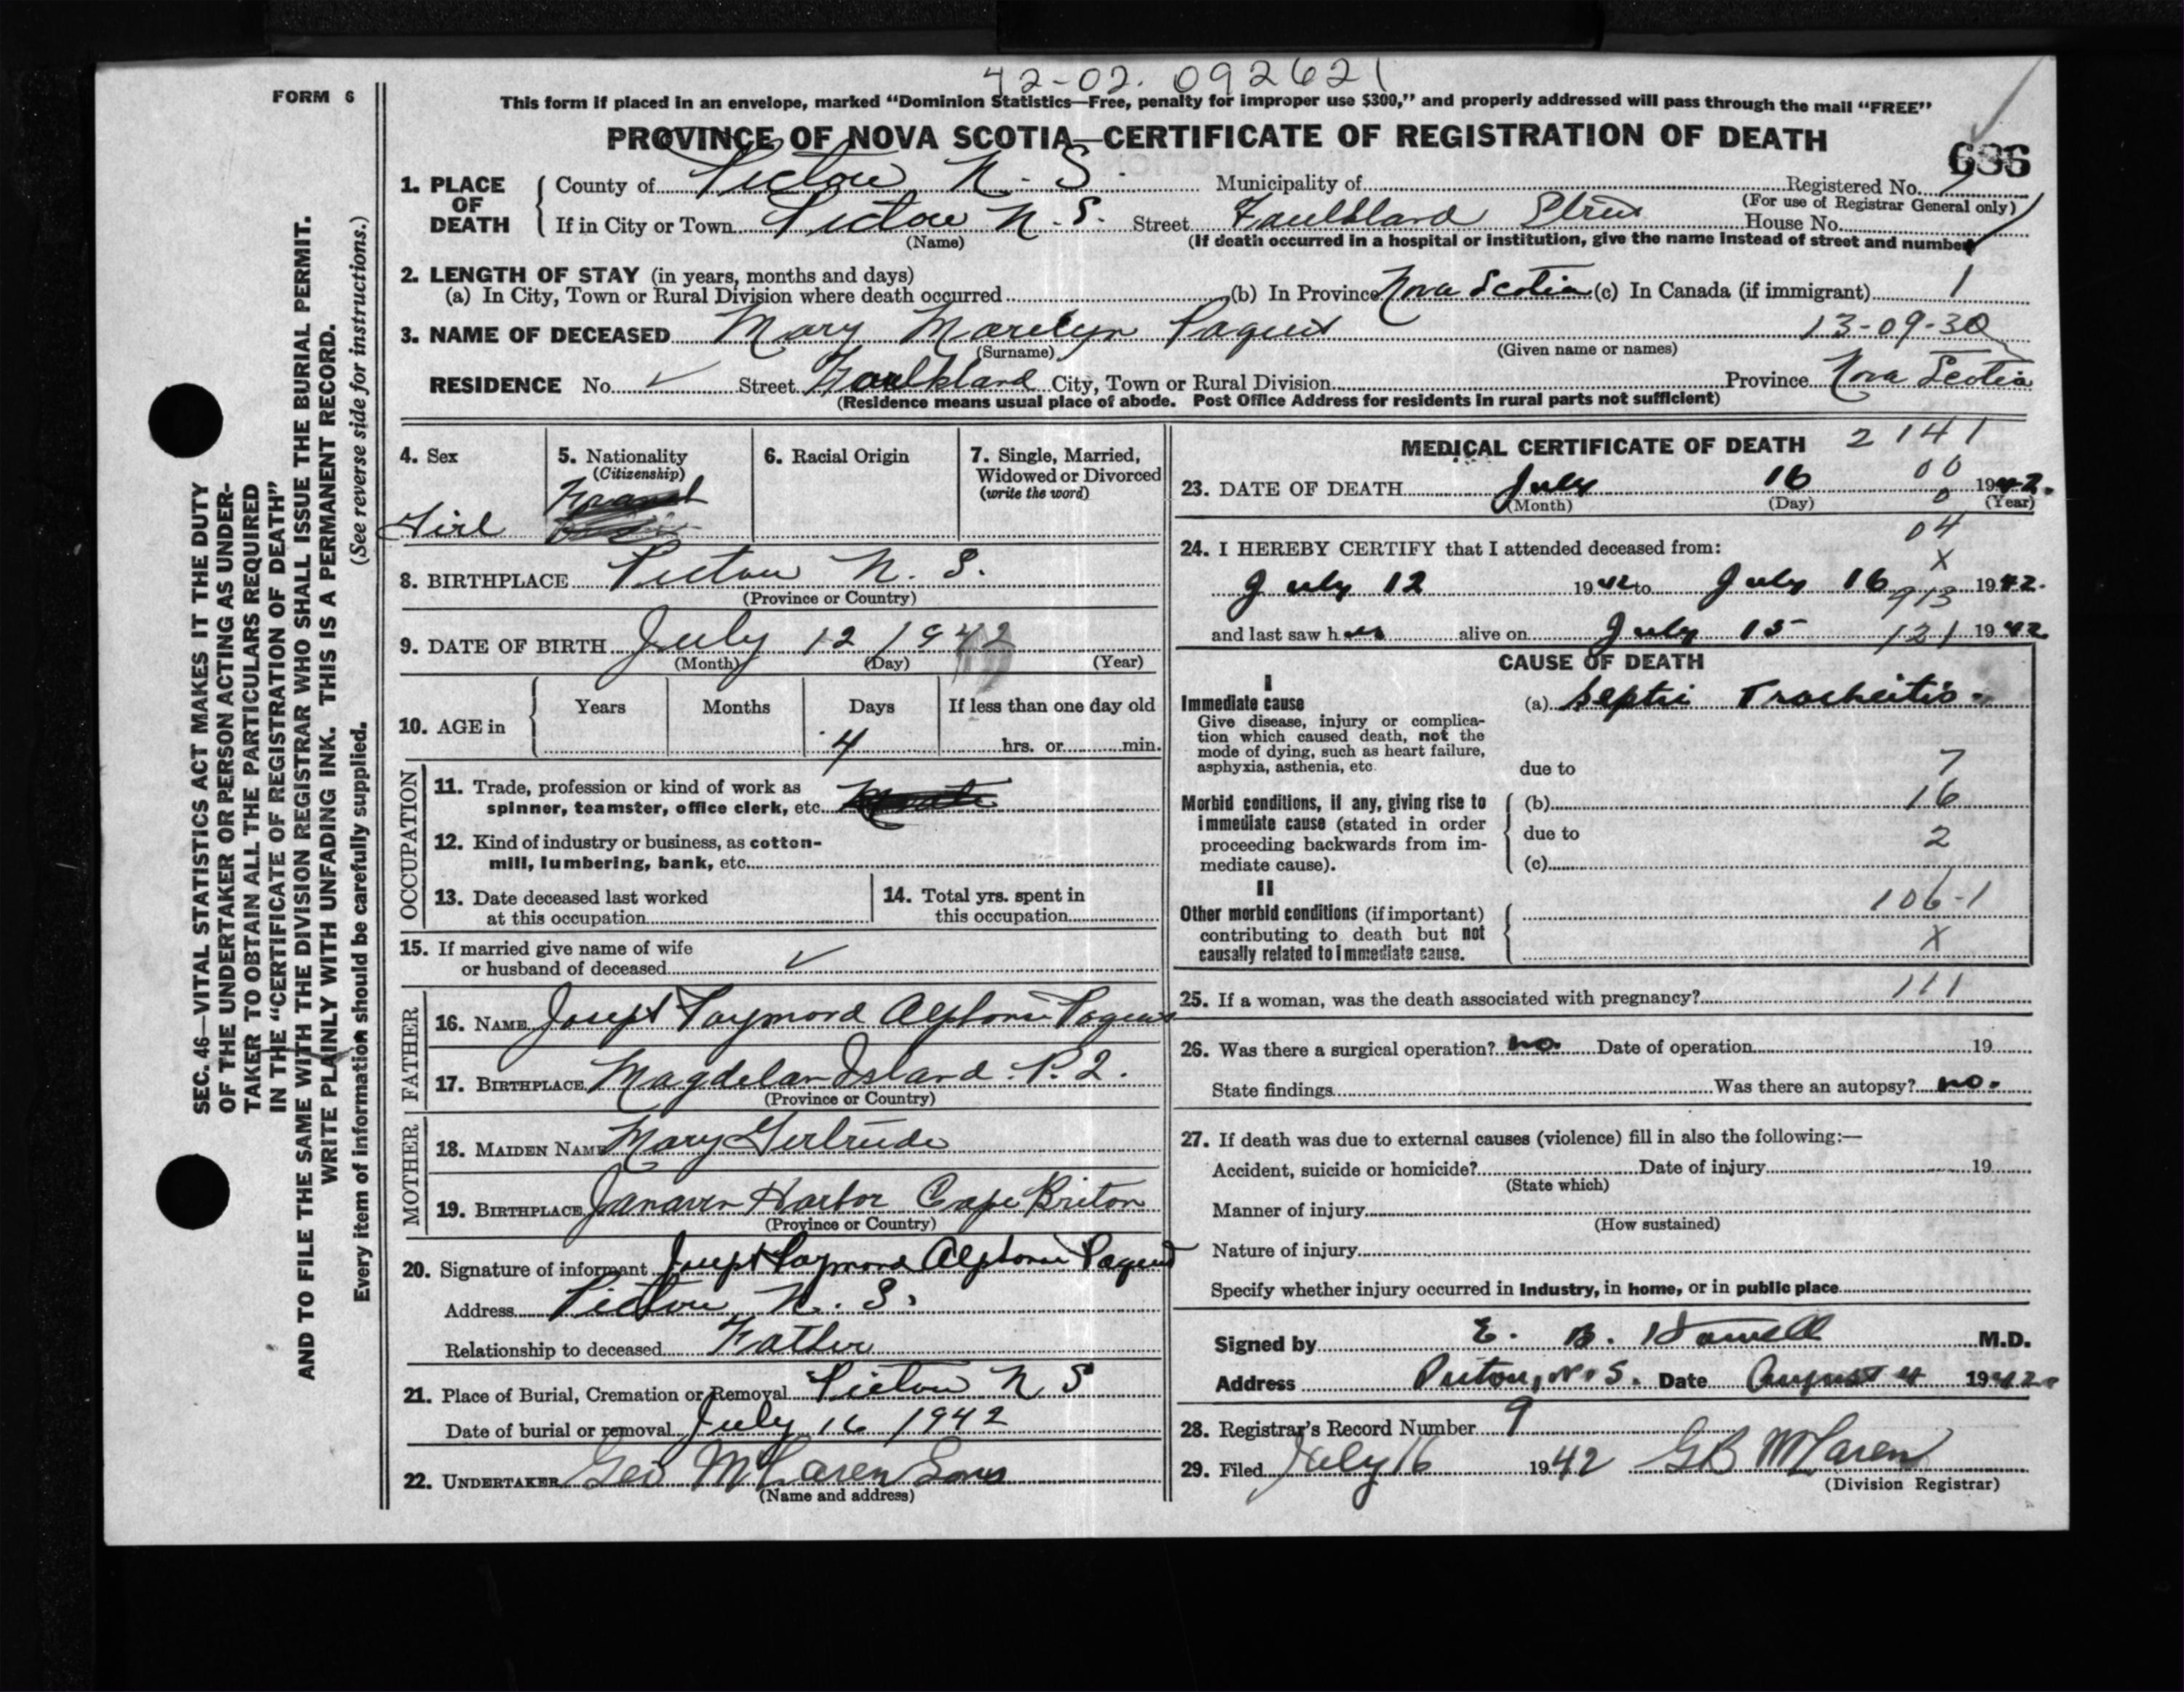 42-02. 092621
FORM 6
This form if placed in an envelope, marked “Dominion Statistics—Free, penalty for improper use $300,” and properly addressed will pass through the mail “FREE”
PROVINCE OF NOVA SCOTIA—CERTIFICATE OF REGISTRATION OF DEATH
686
1. PLACE OF DEATH
County of Pictou N. S. Municipality of Registered No.
(For use of Registrar General only)
If in City or Town Pictou N. S. Street Faulkland House No.
(Name) (If death occurred in a hospital or institution, give the name instead of street and number)
2. LENGTH OF STAY (in years, months and days)
(a) In City, Town or Rural Division where death occurred (b) In Province Nova Scotia (c) In Canada (if immigrant) 1
3. NAME OF DECEASED Mary Marilyn 13-09-30
(Surname) (Given name or names)
RESIDENCE No. ✓ Street Faulkland City, Town or Rural Division Province Nova Scotia
(Residence means usual place of abode. Post Office Address for residents in rural parts not sufficient)
4. Sex
Girl
5. Nationality
(Citizenship)
6. Racial Origin
7. Single, Married, Widowed or Divorced
(write the word)
8. BIRTHPLACE Pictou N. S.
(Province or Country)
9. DATE OF BIRTH July 12 1942
(Month) (Day) (Year)
10. AGE in Years Months Days If less than one day old
4 hrs. or min.
OCCUPATION
11. Trade, profession or kind of work as
spinner, teamster, office clerk, etc.
12. Kind of industry or business, as cotton-
mill, lumbering, bank, etc.
13. Date deceased last worked
at this occupation
14. Total yrs. spent in
this occupation
15. If married give name of wife
or husband of deceased ✓
FATHER
16. NAME Joseph Raymond
17. BIRTHPLACE Magdelan Island P. Q.
(Province or Country)
MOTHER
18. MAIDEN NAME Mary Gertrude
19. BIRTHPLACE Harbor Cape Briton
(Province or Country)
20. Signature of informant Joseph Raymond
Address Pictou N. S.
Relationship to deceased Father
21. Place of Burial, Cremation or Removal Pictou N S
Date of burial or removal July 16 1942
22. UNDERTAKER Geo McLaren Sons
(Name and address)
MEDICAL CERTIFICATE OF DEATH 2141
00
23. DATE OF DEATH July 16 1942.
(Month) (Day) (Year)
0
04
24. I HEREBY CERTIFY that I attended deceased from:
X
July 12 1942 to July 16 1942.
913
and last saw her alive on July 15 1942
121
CAUSE OF DEATH
I
Immediate cause
Give disease, injury or complica-
tion which caused death, not the
mode of dying, such as heart failure,
asphyxia, asthenia, etc.
(a) Septic Tracheitis
due to 7
Morbid conditions, if any, giving rise to
immediate cause (stated in order
proceeding backwards from im-
mediate cause).
(b) 16
due to 2
(c)
II
Other morbid conditions (if important)
contributing to death but not
causally related to immediate cause.
106-1
X
25. If a woman, was the death associated with pregnancy? 111
26. Was there a surgical operation? no. Date of operation 19
State findings Was there an autopsy? no.
27. If death was due to external causes (violence) fill in also the following:—
Accident, suicide or homicide? Date of injury 19
(State which)
Manner of injury
(How sustained)
Nature of injury
Specify whether injury occurred in industry, in home, or in public place
Signed by E. B. M.D.
Address Pictou, N. S. Date August 4 1942.
28. Registrar's Record Number 9
29. Filed July 16 1942 G B McLaren
(Division Registrar)
SEC. 46—VITAL STATISTICS ACT MAKES IT THE DUTY
OF THE UNDERTAKER OR PERSON ACTING AS UNDER-
TAKER TO OBTAIN ALL THE PARTICULARS REQUIRED
IN THE “CERTIFICATE OF REGISTRATION OF DEATH”
AND TO FILE THE SAME WITH THE DIVISION REGISTRAR WHO SHALL ISSUE THE BURIAL PERMIT.
WRITE PLAINLY WITH UNFADING INK. THIS IS A PERMANENT RECORD.
Every item of information should be carefully supplied. (See reverse side for instructions.)